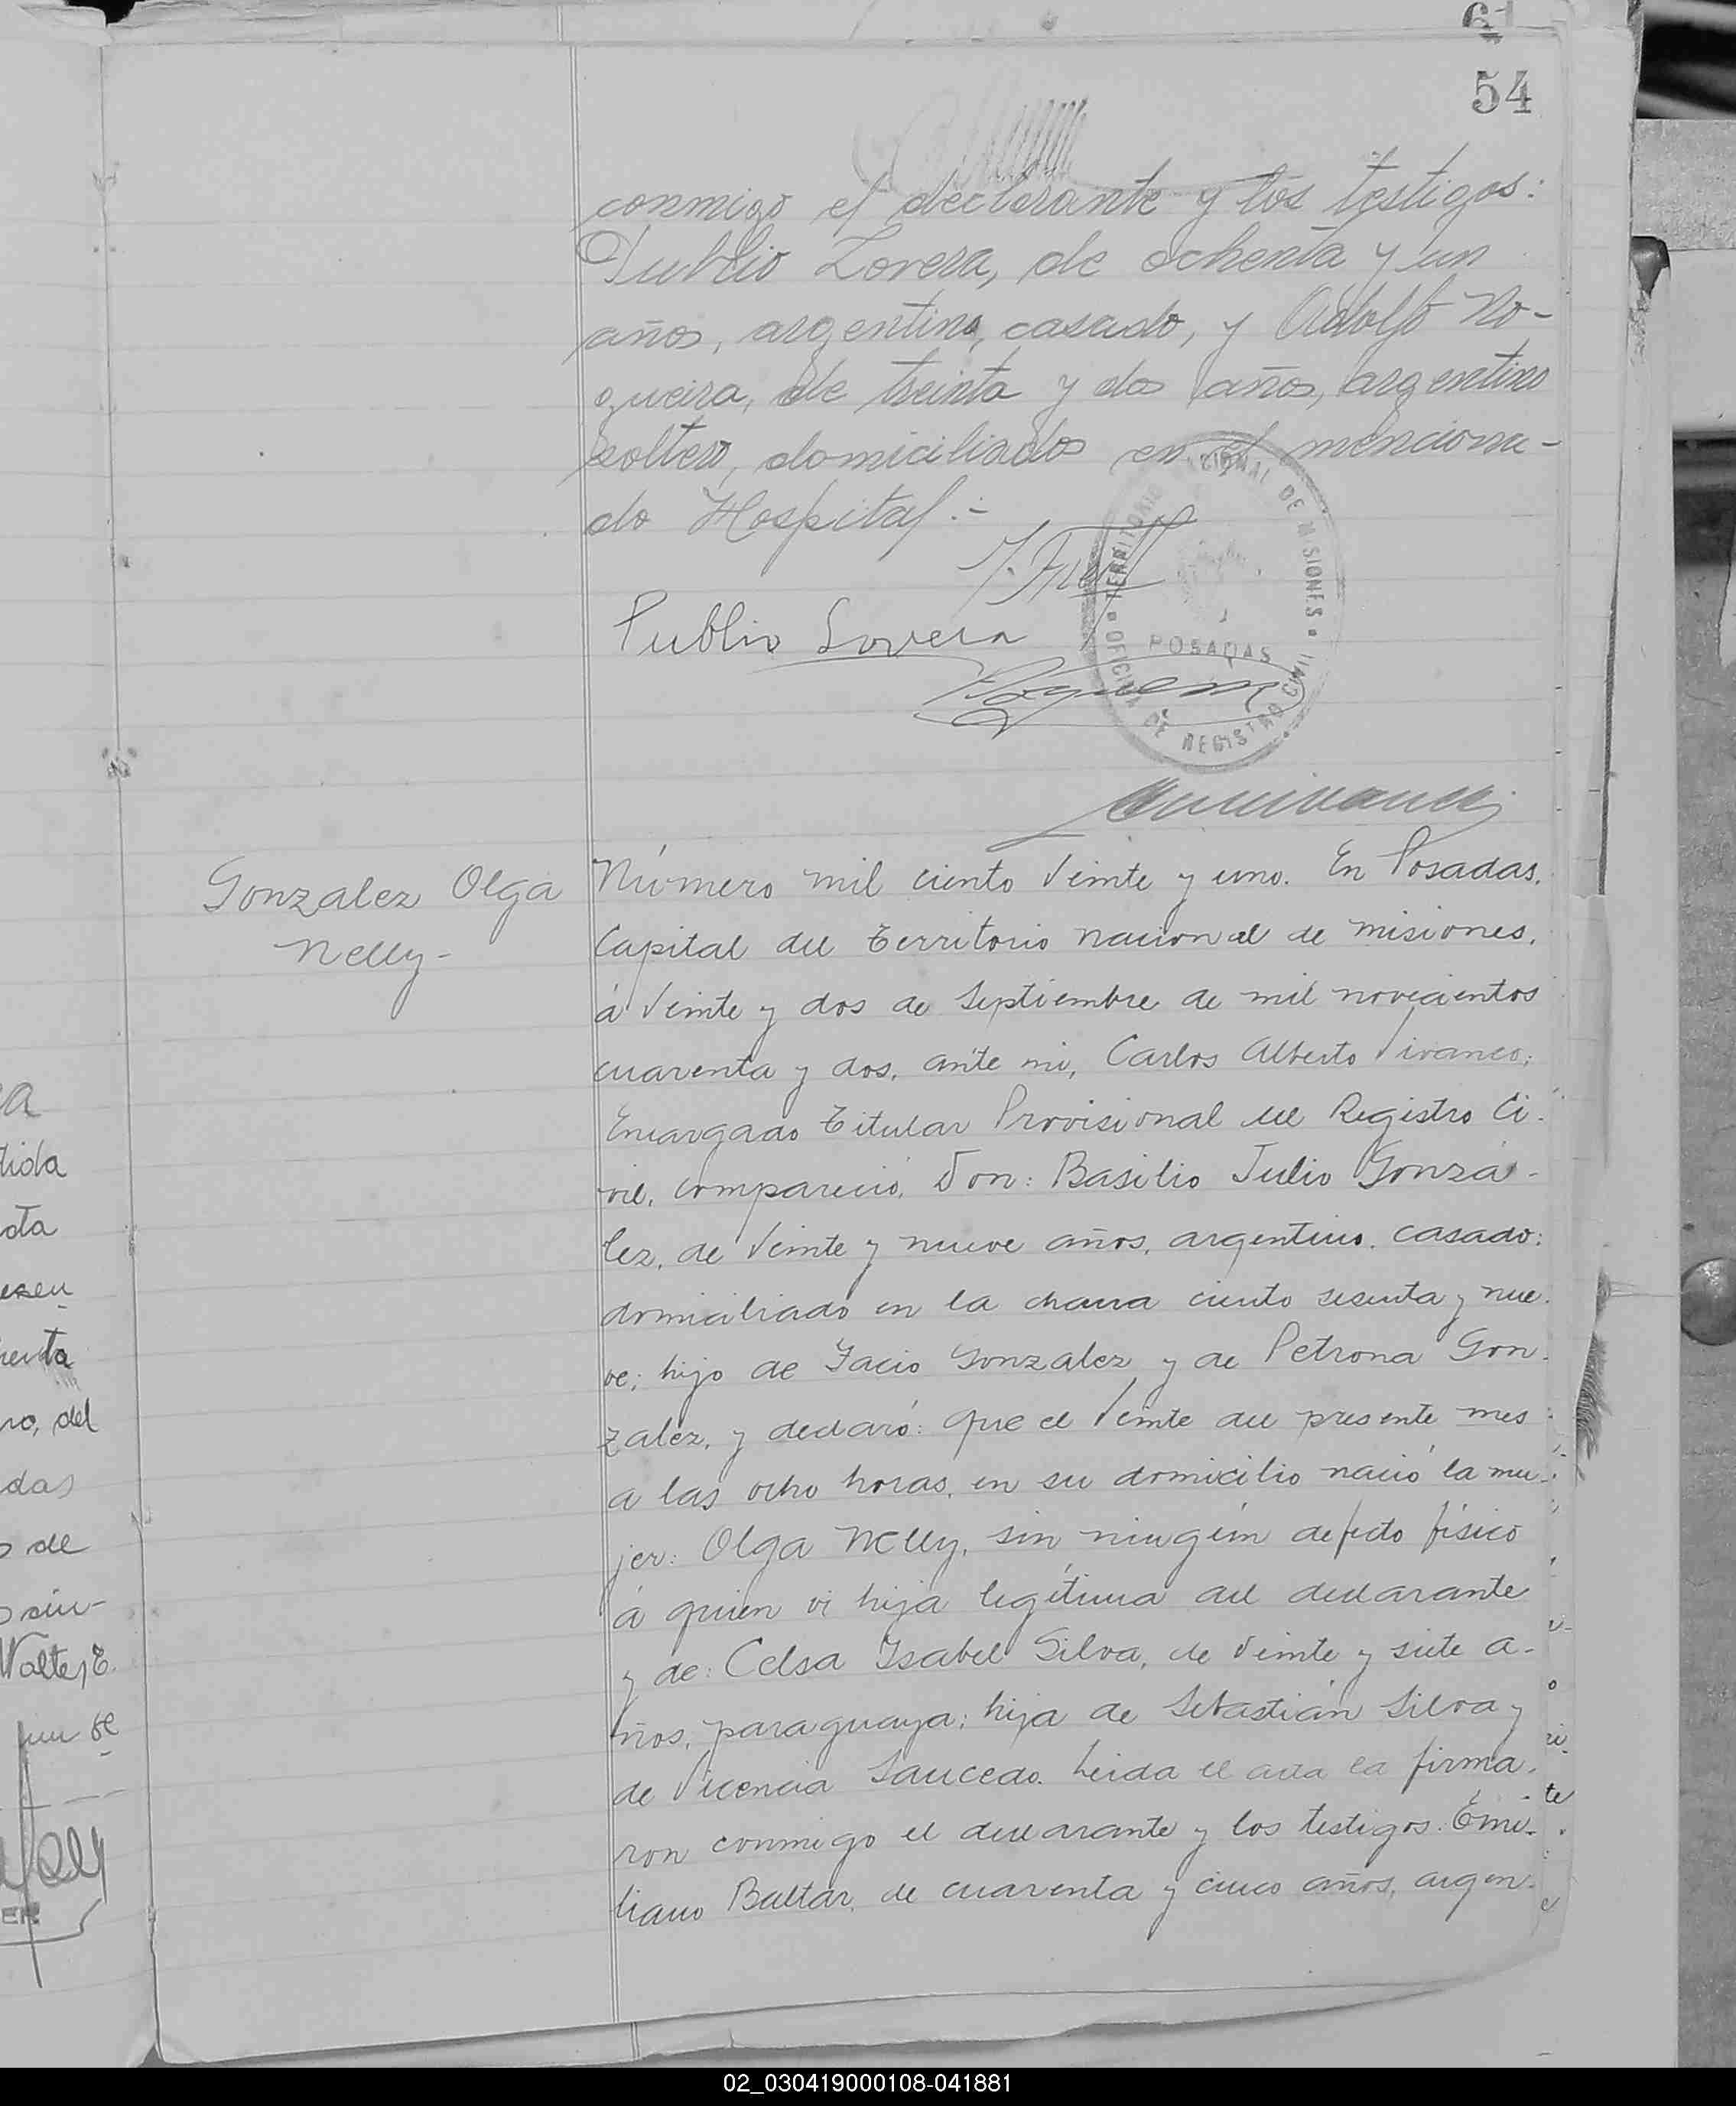 61
54
conmigo el declarante y los testigos:
Publio Lovera, de ochenta y un
años, argentino, casado, y Adolfo No-
gueira, de treinta y dos años, argentino
soltero, domiciliados en el menciona-
do Hospital.-
Publio Lovera
TERRITORIO NACIONAL DE MISIONES
OFICINA DE REGISTRO CIVIL
POSADAS
Gonzalez Olga
Nelly-
Número mil ciento veinte y uno. En Posadas,
Capital del Territorio nacional de misiones,
á veinte y dos de Septiembre de mil novecientos
cuarenta y dos, ante mi, Carlos Alberto Vivanco;
Encargado Titular Provisional del Registro Ci-
vil, compareció, Don: Basilio Julio Gonzá-
lez, de veinte y nueve años, argentino, casado;
domiciliado en la chacra ciento sesenta y nue-
ve; hijo de Facio Gonzalez y de Petrona Gon-
zalez, y declaró: que el veinte del presente mes
a las ocho horas, en su domicilio nació la mu-
jer: Olga Nelly, sin ningún defecto físico
á quien vi hija legítima del declarante
y de: Celsa Isabel Silva, de veinte y siete a-
ños, paraguaya; hija de Sebastián Silva y
de Vicencia Saucedo. Leida el acta la firma-
ron conmigo el declarante y los testigos: Emi-
liano Baltar, de cuarenta y cinco años, argen-
tida
ota
no, del
das
o de
Walter E.
02_030419000108-041881